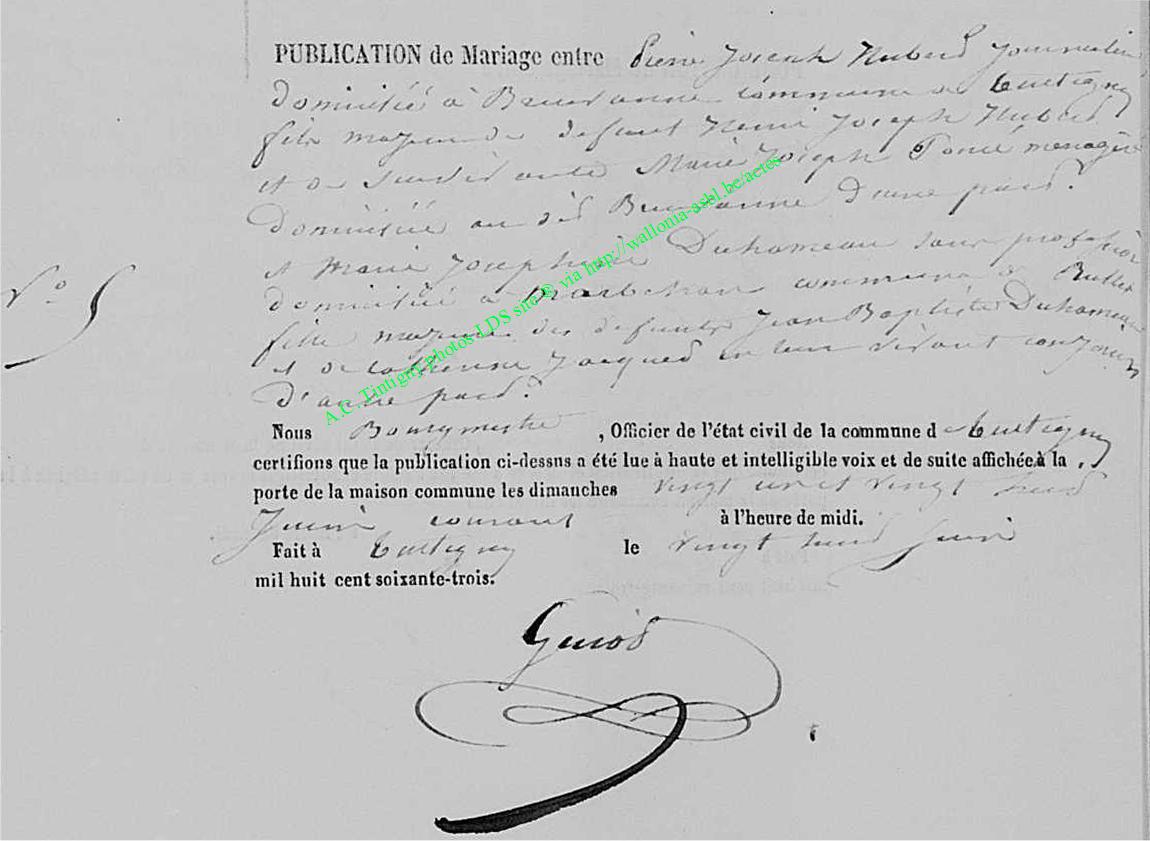 PUBLICATION de Mariage entre Pierre Joseph Hubert journalier
domicilié à commune de Tintigny
fils majeur de défunt Henri Joseph Hubert
et de survivante Marie Joseph Poncé ménagère
domiciliée au dit d'une part.
et Marie Joséphine Duhameau sans profession
domiciliée à commune de Rulles
fille majeure des défunts Jean Baptiste Duhameau
et de Jacques en leur vivant conjoints
d'autre part.
N° 5
Nous Bourgmestre , Officier de l'état civil de la commune d Tintigny
certifions que la publication ci-dessns a été lue à haute et intelligible voix et de suite affichée à la
porte de la maison commune les dimanches vingt un et vingt huit
Juin courant à l'heure de midi.
Fait à Tintigny le vingt huit juin
mil huit cent soixante-trois.
A.C. Tintigny photos LDS site © via http://wallonia-asbl.be/actes